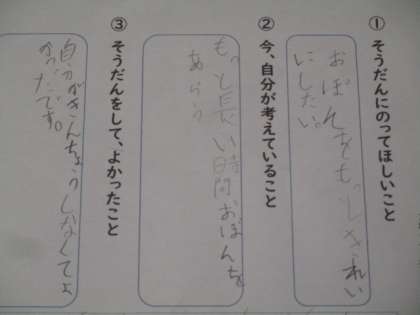 ① そうだんにのってほしいこと
おぼんをもっときれい
にしたい。
② 今、自分が考えていること
もっと長い時間おぼんを
あらう
③ そうだんをして、よかったこと
自分がきんちょうしなくてよ
かったです。